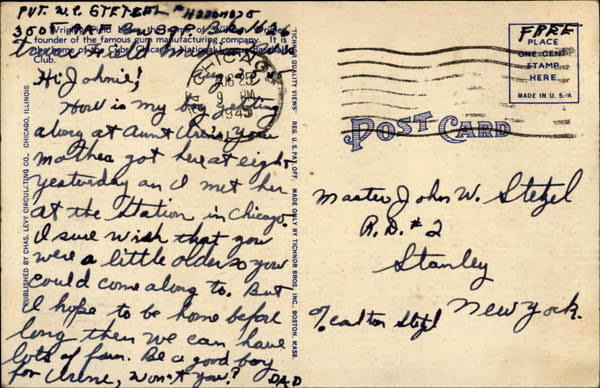 PVT. W.C. STETZEL
Wrigley Field
founder of the famous gum manufacturing company. It is
the home of the Cubs, Chicago National League Baseball
Club.
Aug 25
Hi Johnie!
How is my boy getting
along at Aunt Urene's, your
mother got here at eight
yesterday an I met her
at the station in Chicago.
I sure wish that you
were a little older so you
could come along to. But
I hope to be home befor
long then we can have
lots of fun. Be a good boy
for Urene, won't you?
DAD
PUBLISHED BY CHAS. LEVY CIRCULATING CO., CHICAGO, ILLINOIS
TICHNOR QUALITY VIEWS REG. U.S. PAT. OFF. MADE ONLY BY TICHNOR BROS., INC., BOSTON, MASS.
CHICAGO
AUG 25
9 PM
1945
FREE
PLACE
ONE CENT
STAMP
HERE
MADE IN U.S.A.
POST CARD
Master John W. Stetzel
R.D. #2
Stanley
New York.
c/o Carlton Stetzl